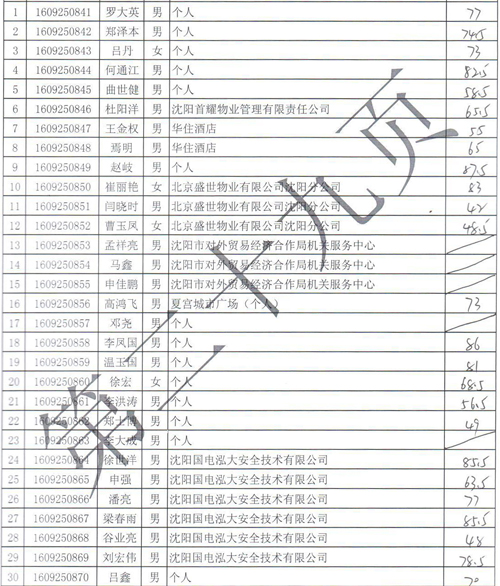 1 1609250841 罗大英 男 个人 77
2 1609250842 郑泽本 男 个人 74.5
3 1609250843 吕丹 女 个人 73
4 1609250844 何通江 男 个人 82.5
5 1609250845 曲世健 男 个人 58.5
6 1609250846 杜阳洋 男 沈阳首耀物业管理有限责任公司 65.5
7 1609250847 王金权 男 华住酒店 55
8 1609250848 焉明 男 华住酒店 65
9 1609250849 赵岐 男 个人 87.5
10 1609250850 崔丽艳 女 北京盛世物业有限公司沈阳分公司 83
11 1609250851 闫晓时 男 北京盛世物业有限公司沈阳分公司 42
12 1609250852 曹玉凤 女 北京盛世物业有限公司沈阳分公司 48.5
13 1609250853 孟祥亮 男 沈阳市对外贸易经济合作局机关服务中心
14 1609250854 马鑫 男 沈阳市对外贸易经济合作局机关服务中心
15 1609250855 申佳鹏 男 沈阳市对外贸易经济合作局机关服务中心
16 1609250856 高鸿飞 男 夏宫城市广场（个人） 73
17 1609250857 邓尧 男 个人
18 1609250858 李凤国 男 个人 86
19 1609250859 温玉国 男 个人 81
20 1609250860 徐宏 女 个人 68.5
21 1609250861 李洪涛 男 个人 56.5
22 1609250862 郑士博 男 个人 49
23 1609250863 李大成 男 个人
24 1609250864 徐世洋 男 沈阳国电泓大安全技术有限公司 85.5
25 1609250865 申强 男 沈阳国电泓大安全技术有限公司 63.5
26 1609250866 潘亮 男 沈阳国电泓大安全技术有限公司 77
27 1609250867 梁春雨 男 沈阳国电泓大安全技术有限公司 85.5
28 1609250868 谷业亮 男 沈阳国电泓大安全技术有限公司 48
29 1609250869 刘宏伟 男 沈阳国电泓大安全技术有限公司 78.5
30 1609250870 吕鑫 男 个人 70
第二十九页